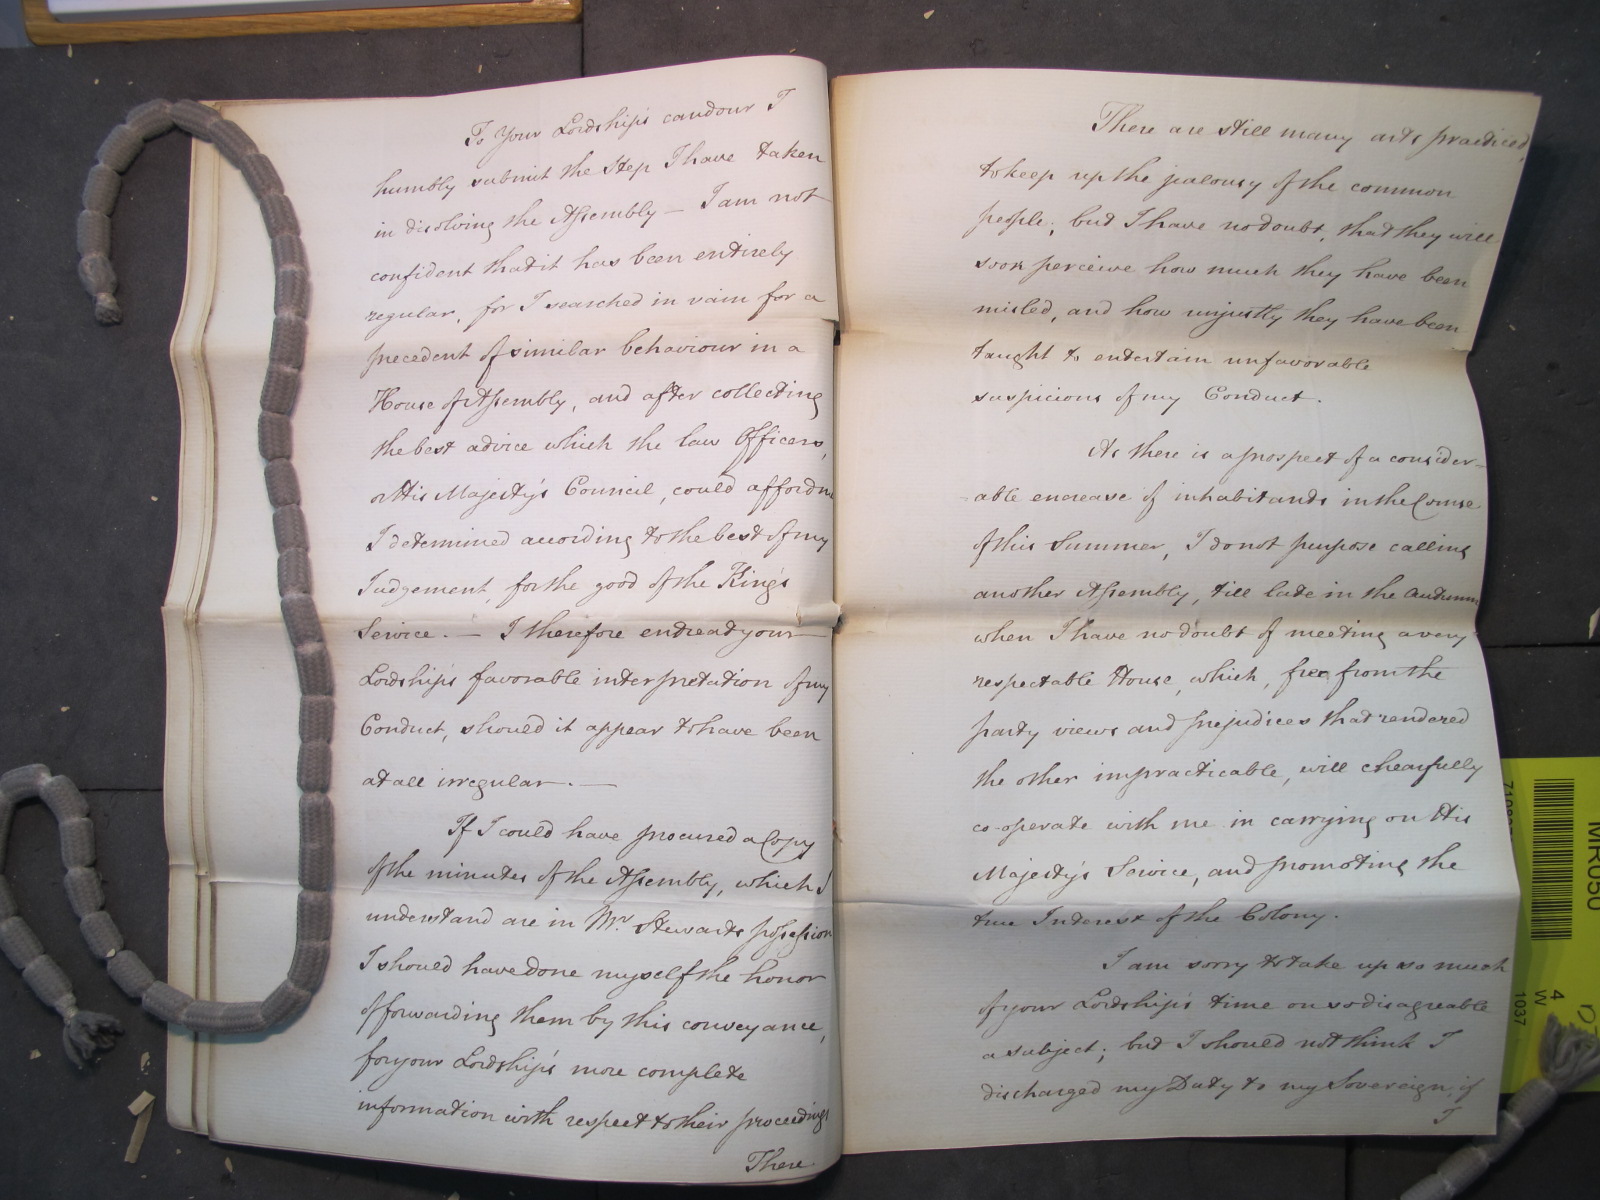 To Your Lordship's candour I
humbly submit the Step I have taken
in disolving the Assembly — I am not
confident that it has been entirely
regular, for I searched in vain for a
precedent of similar behaviour in a
House of Assembly, and after collecting
the best advice which the law Officers,
or His Majesty's Council, could afford me
I determined according to the best of my
Judgement, for the good of the King's
Service. — I therefore entreat your
Lordship's favorable interpretation of my
Conduct, should it appear to have been
at all irregular. —
If I could have procured a Copy
of the minutes of the Assembly, which I
understand are in Mr. Stewarts possession
I should have done myself the honor
of forwarding them by this conveyance,
for your Lordship's more complete
information with respect to their proceedings
There
There are still many arts practiced,
to keep up the jealousy of the common
people; but I have no doubt, that they will
soon perceive how much they have been
misled, and how unjustly they have been
taught to entertain unfavorable
suspicions of my Conduct.
As there is a prospect of a consider-
-able encrease of inhabitants in the Course
of this Summer, I do not purpose calling
another Assembly, till late in the Autumn
when I have no doubt of meeting a very
respectable House, which, free from the
party views and prejudices that rendered
the other impracticable, will chearfully
co-operate with me in carrying on His
Majesty's Service, and promoting the
true Interest of the Colony.
I am sorry to take up so much
of your Lordship's time on so disagreable
a subject; but I should not think I
discharged my Duty to my Sovereign, if
I
MR050
4
W
1037